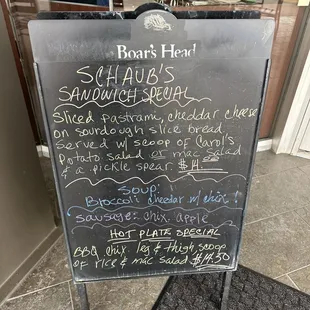 Boar's Head
SCHAUB'S
SANDWICH SPECIAL
Sliced Pastrami, cheddar cheese
on sourdough slice bread.
Served w/ scoop of Carol's
Potato salad or mac salad
& a pickle spear. $14
SOUP!
Broccoli cheddar w/ chix!
Sausage: chix, apple
HOT PLATE SPECIAL
BBQ chix. leg & thigh, scoop
of rice & mac salad $14.50